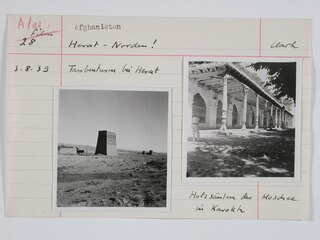 Afg. Afghanistan
Film
28 Herat - Norden! Clark
3.8.39 Taubenturm bei Herat
Holzsäulen der Moschee
in Karokh